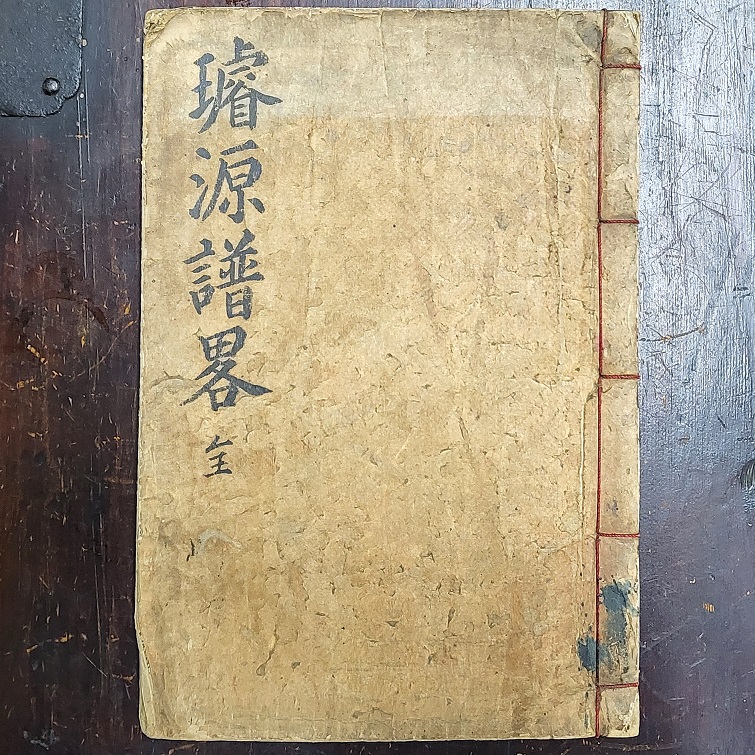 璿源譜畧 全